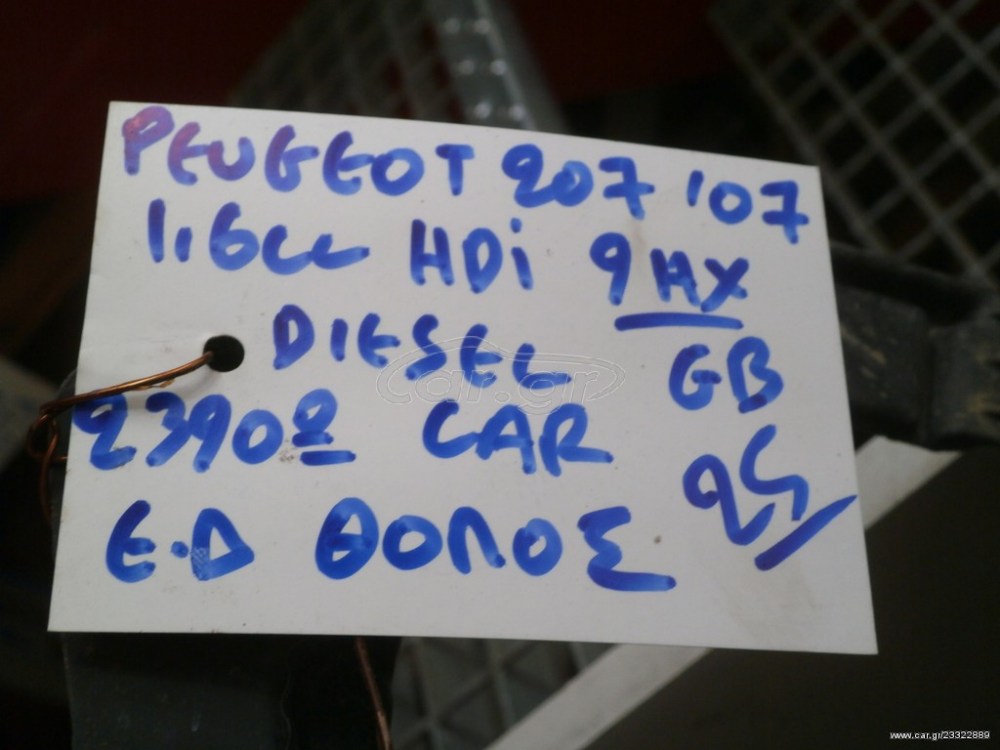 PEUGEOT 207 '07
1.6cc HDi 9HX
DIESEL GB
23902 CAR 25
E.Δ ΘΟΛΟΣ
car.gr
www.car.gr/23322889